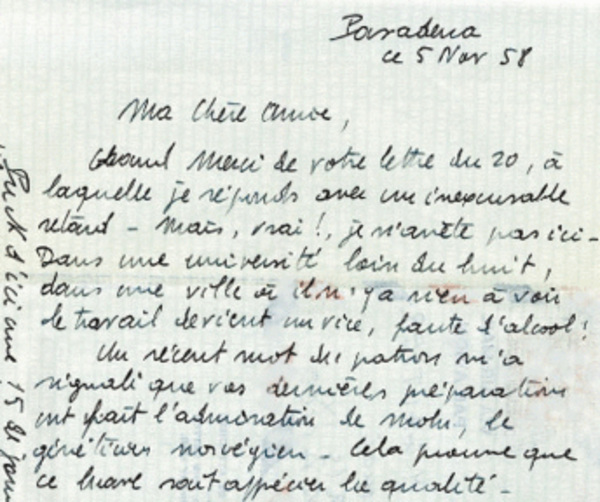 Pasadena
ce 5 Nov 58
Ma Chère Amie,
Grand Merci de votre lettre du 20, à
laquelle je réponds avec un inexcusable
retard - Mais, vrai!, je n'arrête pas ici -
Dans une université loin du bruit,
dans une ville où il n'y a rien à voir
le travail devient un vice, faute d'alcool!
Un récent mot du patron m'a
signalé que vos dernières préparations
ont fait l'admiration de Mohr, le
généticien norvégien - Cela prouve que
ce brave sait apprécier la qualité -
d'ici une 15 de jours